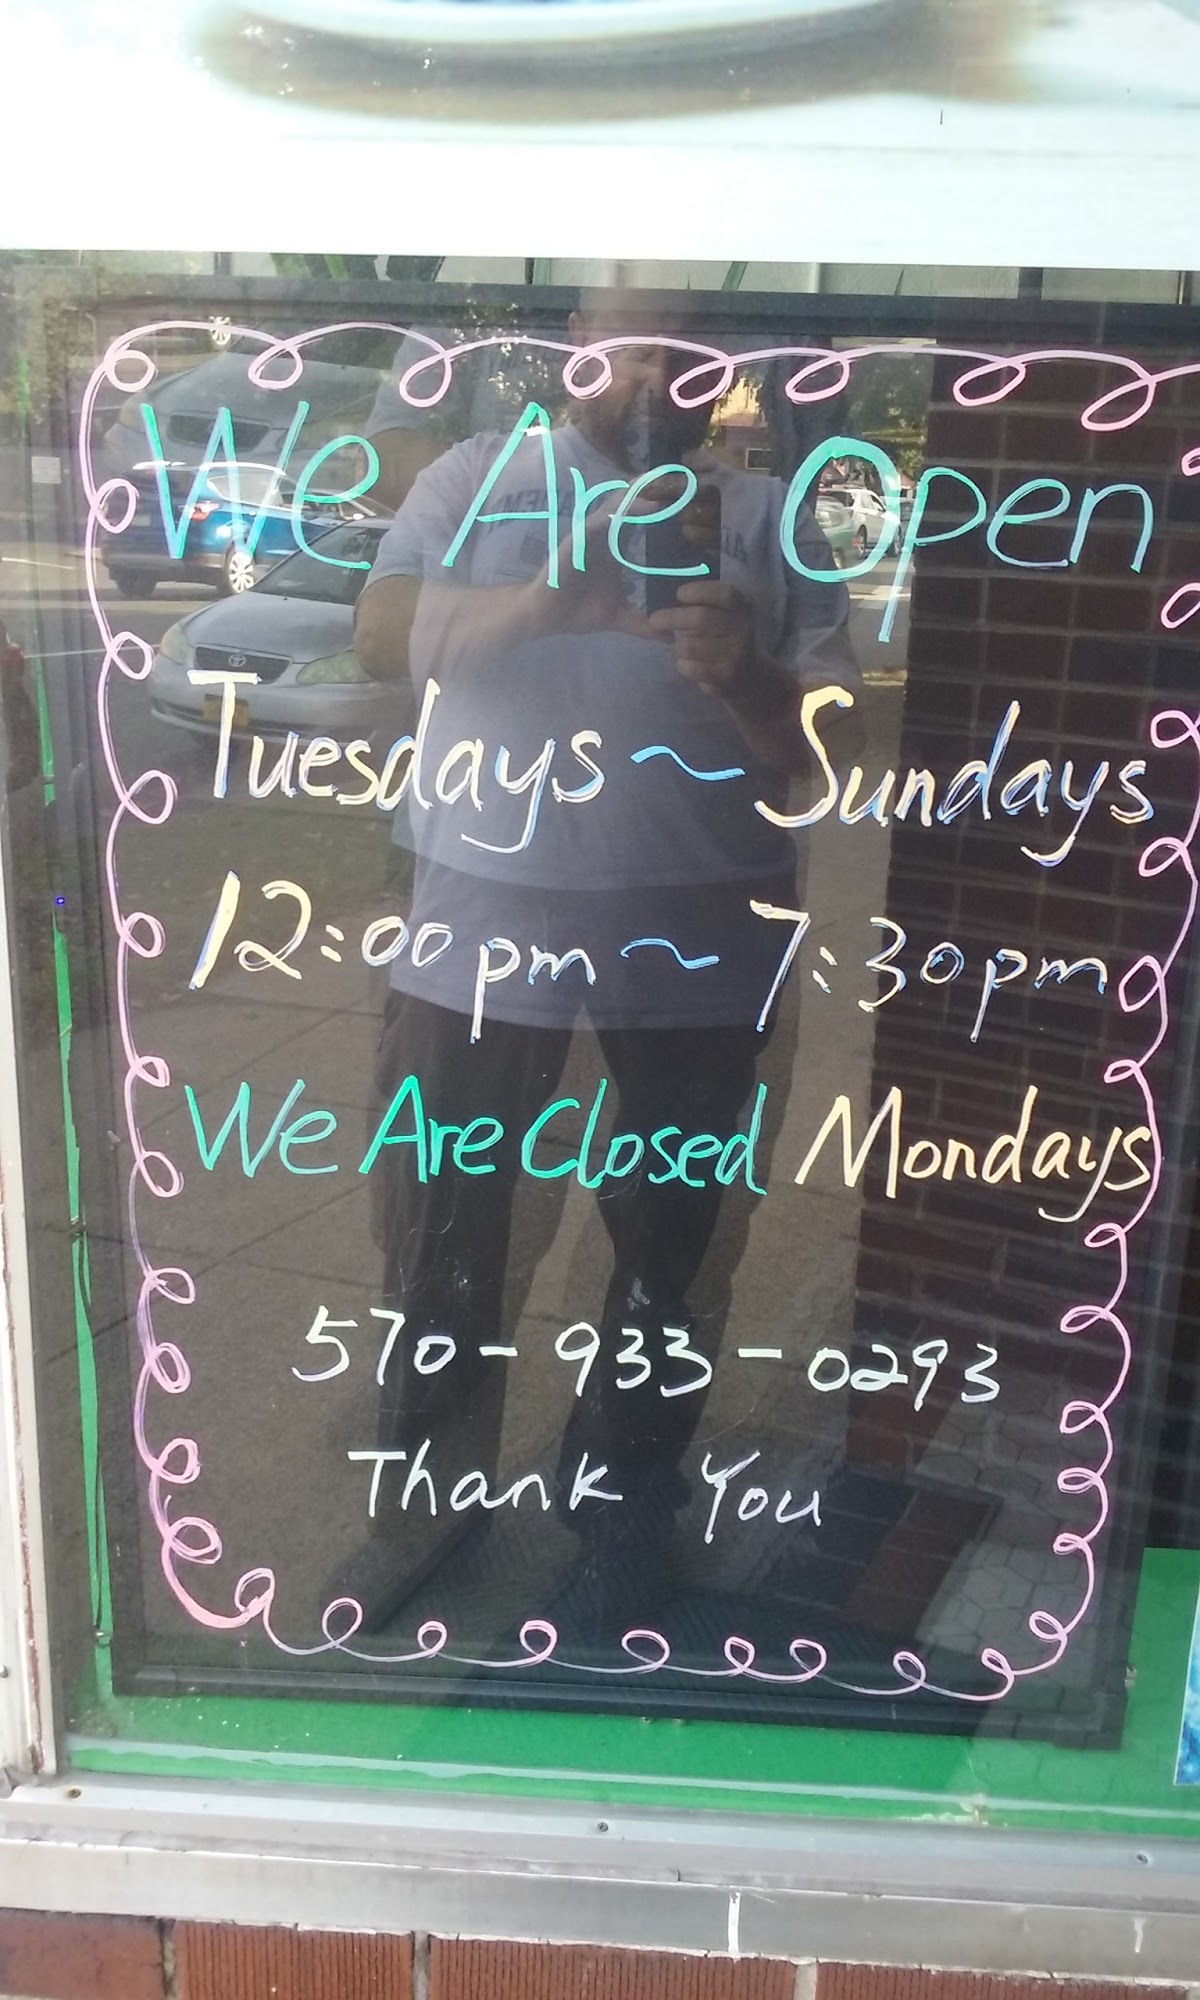 We Are Open
Tuesdays ~ Sundays
12:00 pm ~ 7:30pm
We Are Closed Mondays
570-933-0293
Thank You